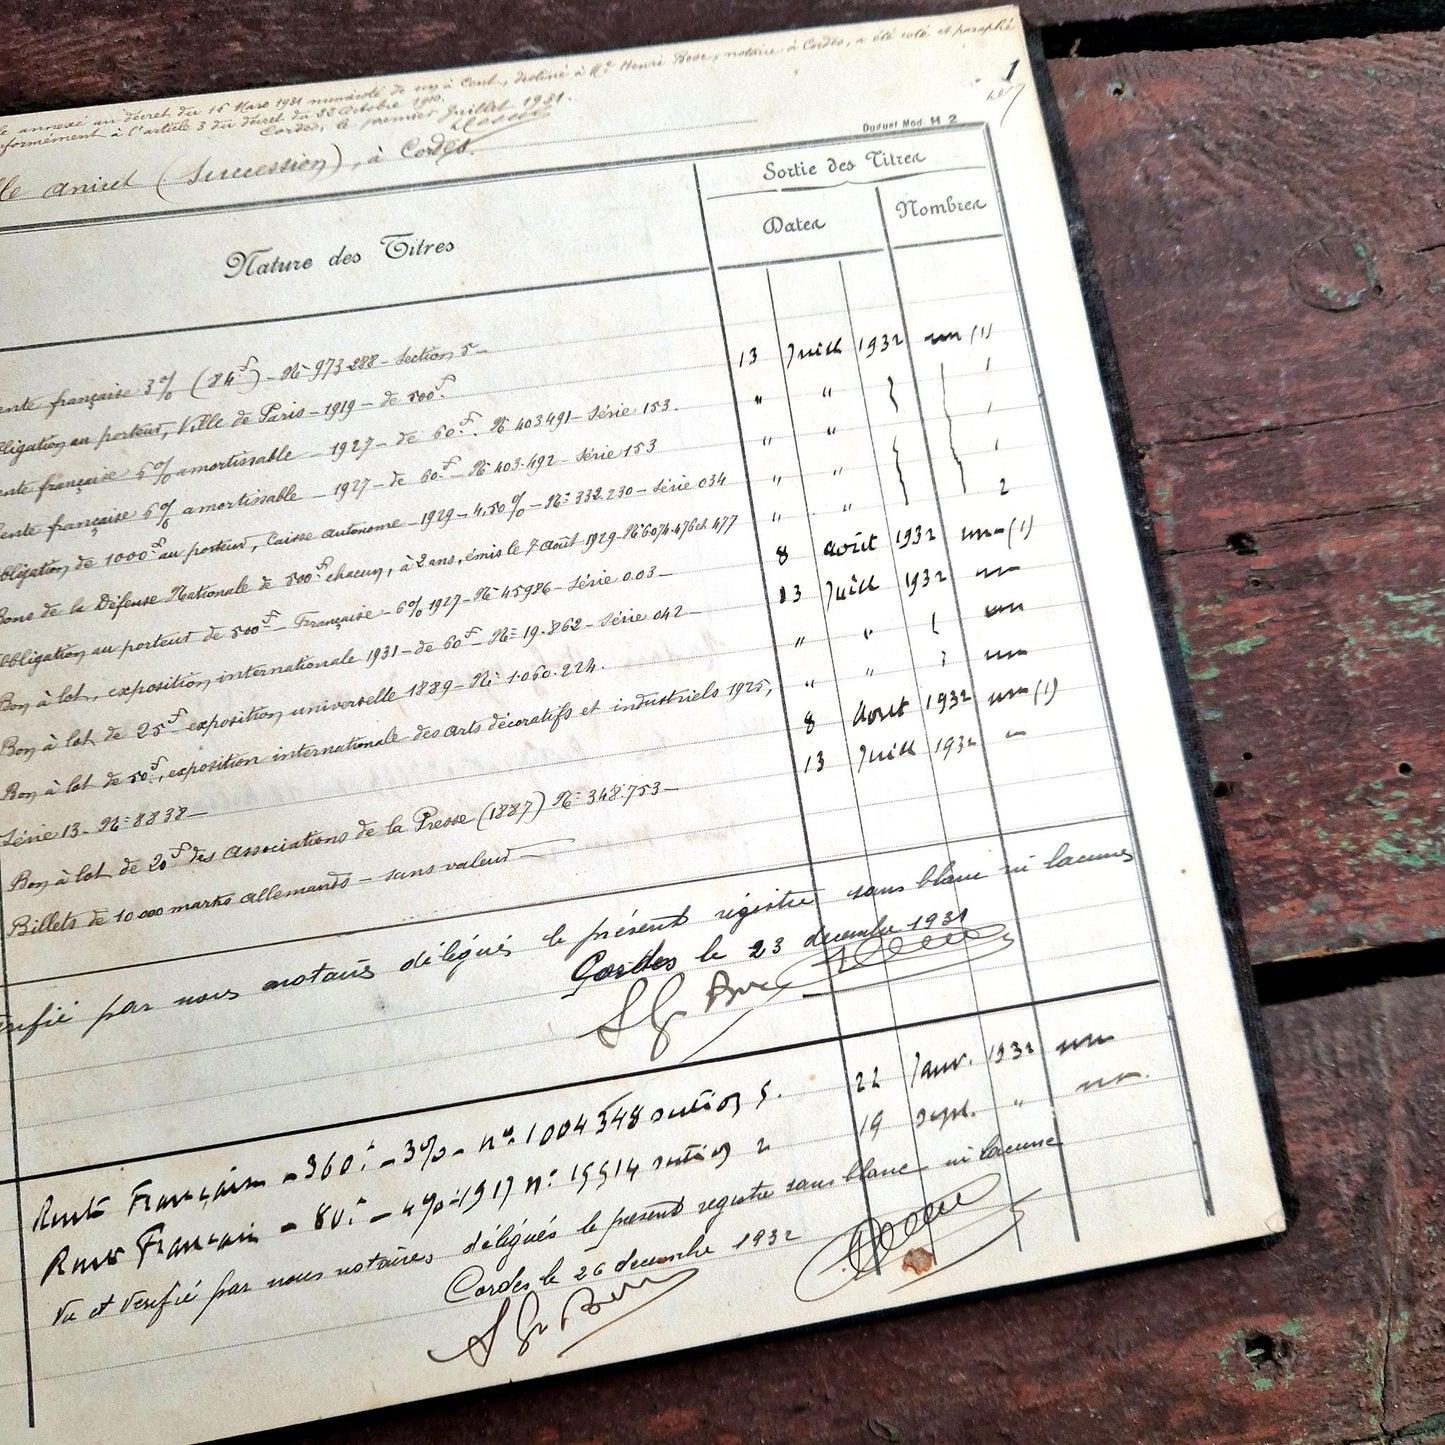 annexé au décret du 15 Mars 1931 numéroté de un à Cent, destiné à Me Henri Bosc, notaire à Cordes, a été coté et paraphé
formément à l'article 3 du décret du 22 Octobre 1910.
Cordes, le premier Juillet 1931.
1
(Succession), à Cordes.
Duduet Mod. H 2
Nature des Titres
Sortie des Titres
Dates
Nombres
ente française 3% (84f) - No 973.288 - Section 5 - 13 Juill 1932 un (1)
bligation au porteur, Ville de Paris - 1919 - de 500f. " " 1
ente française 6% amortissable - 1927 - de 60f. No 403491 - Série 153. " " 1
ente française 6% amortissable - 1927 - de 60f - No 403.492 - Série 153 " " 1
bligation de 1000f au porteur, Caisse autonome - 1929 - 4.50% - No 332.230 - Série 034 " " 2
Bons de la Défense Nationale de 500f chacun, à 2 ans, émis le 7 Août 1929 - No 6074.476 et 477 8 août 1932 un (1)
Obligation au porteur de 500f - Française - 6% 1927 - No 45986 - Série 0.03 - 13 Juill 1932 un
Bon à lot, exposition internationale 1931 - de 60f - No 19.862 - Série 042 - " " un
Bon à lot de 25f exposition universelle 1889 - No 1.060.224. " " un
Bon à lot de 50f, exposition internationale des arts décoratifs et industriels 1925, 8 Aout 1932 un (1)
Série 13 - No 8838 - 13 Juill 1932 "
Bon à lot de 20f des Associations de la Presse (1887) No 348.753 -
Billets de 10 000 marks allemands - sans valeur -
vérifié par nous notaires délégués le présent registre sans blanc ni lacunes
Cordes le 23 decembre 1931
Rente Française - 360f - 3% - no 1004348 section 5. 22 Janv. 1932 un
Rente Française - 80f - 4% 1917 no 15514 section 2 19 Sept. " un.
Vu et Verifié par nous notaires délégués le present registre sans blanc ni lacune
Cordes le 26 decembre 1932